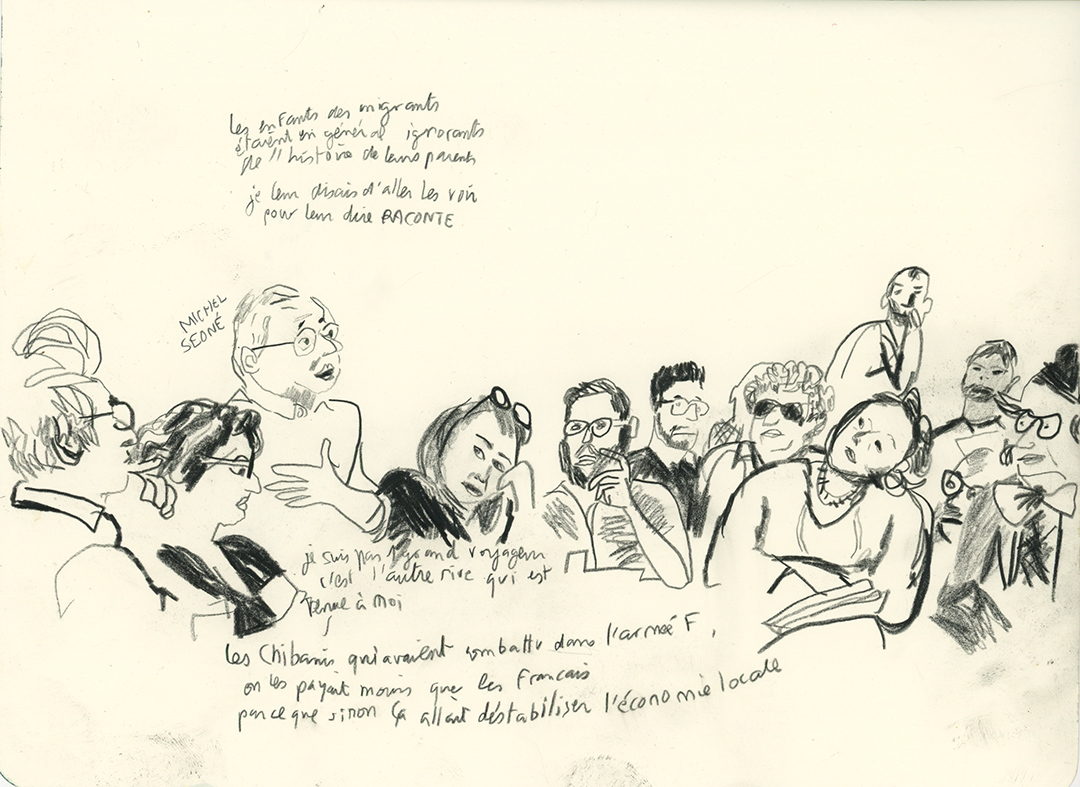 les enfants des migrants
étaient en général ignorants
de l'histoire de leurs parents
je leur disais d'aller les voir
pour leur dire RACONTE
MICHEL
SEONÉ
je suis pas 1 grand voyageur
c'est l'autre rive qui est
venue à moi
les Chibanis qui avaient combattu dans l'armée F,
on les payait moins que les Francais
parce que sinon ça allait déstabiliser l'économie locale